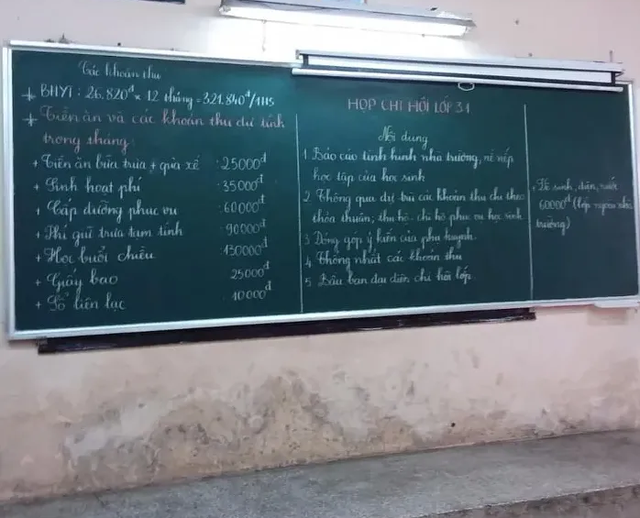 Các khoản thu
+ BHYT : 26.820đ x 12 tháng = 321.840đ/1HS
+ Tiền ăn và các khoản thu dự tính
trong tháng:
+ Tiền ăn bữa trưa + quà xế : 25000đ
+ Sinh hoạt phí : 35000đ
+ Cấp dưỡng phục vụ : 60000đ
+ Phí giữ trưa tạm tính : 90000đ
+ Học buổi chiều : 130000đ
+ Giấy bao 25000đ
+ Sổ liên lạc 10000đ
HỌP CHI HỘI LỚP 31
Nội dung
1 Báo cáo tình hình nhà trường, nề nếp
học tập của học sinh
2 Thông qua dự trù các khoản thu chi theo
thỏa thuận; thu hộ - chi hộ phục vụ học sinh
3 Đóng góp ý kiến của phụ huynh
4 Thống nhất các khoản thu
5 Bầu ban đại diện chi hội lớp.
+ Vệ sinh, điện, nước
60000đ (lớp ngoài
trường)